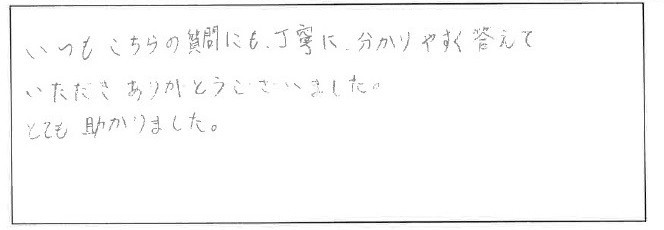 いつもこちらの質問にも、丁寧に、分かりやすく答えて
いただきありがとうございました。
とても助かりました。